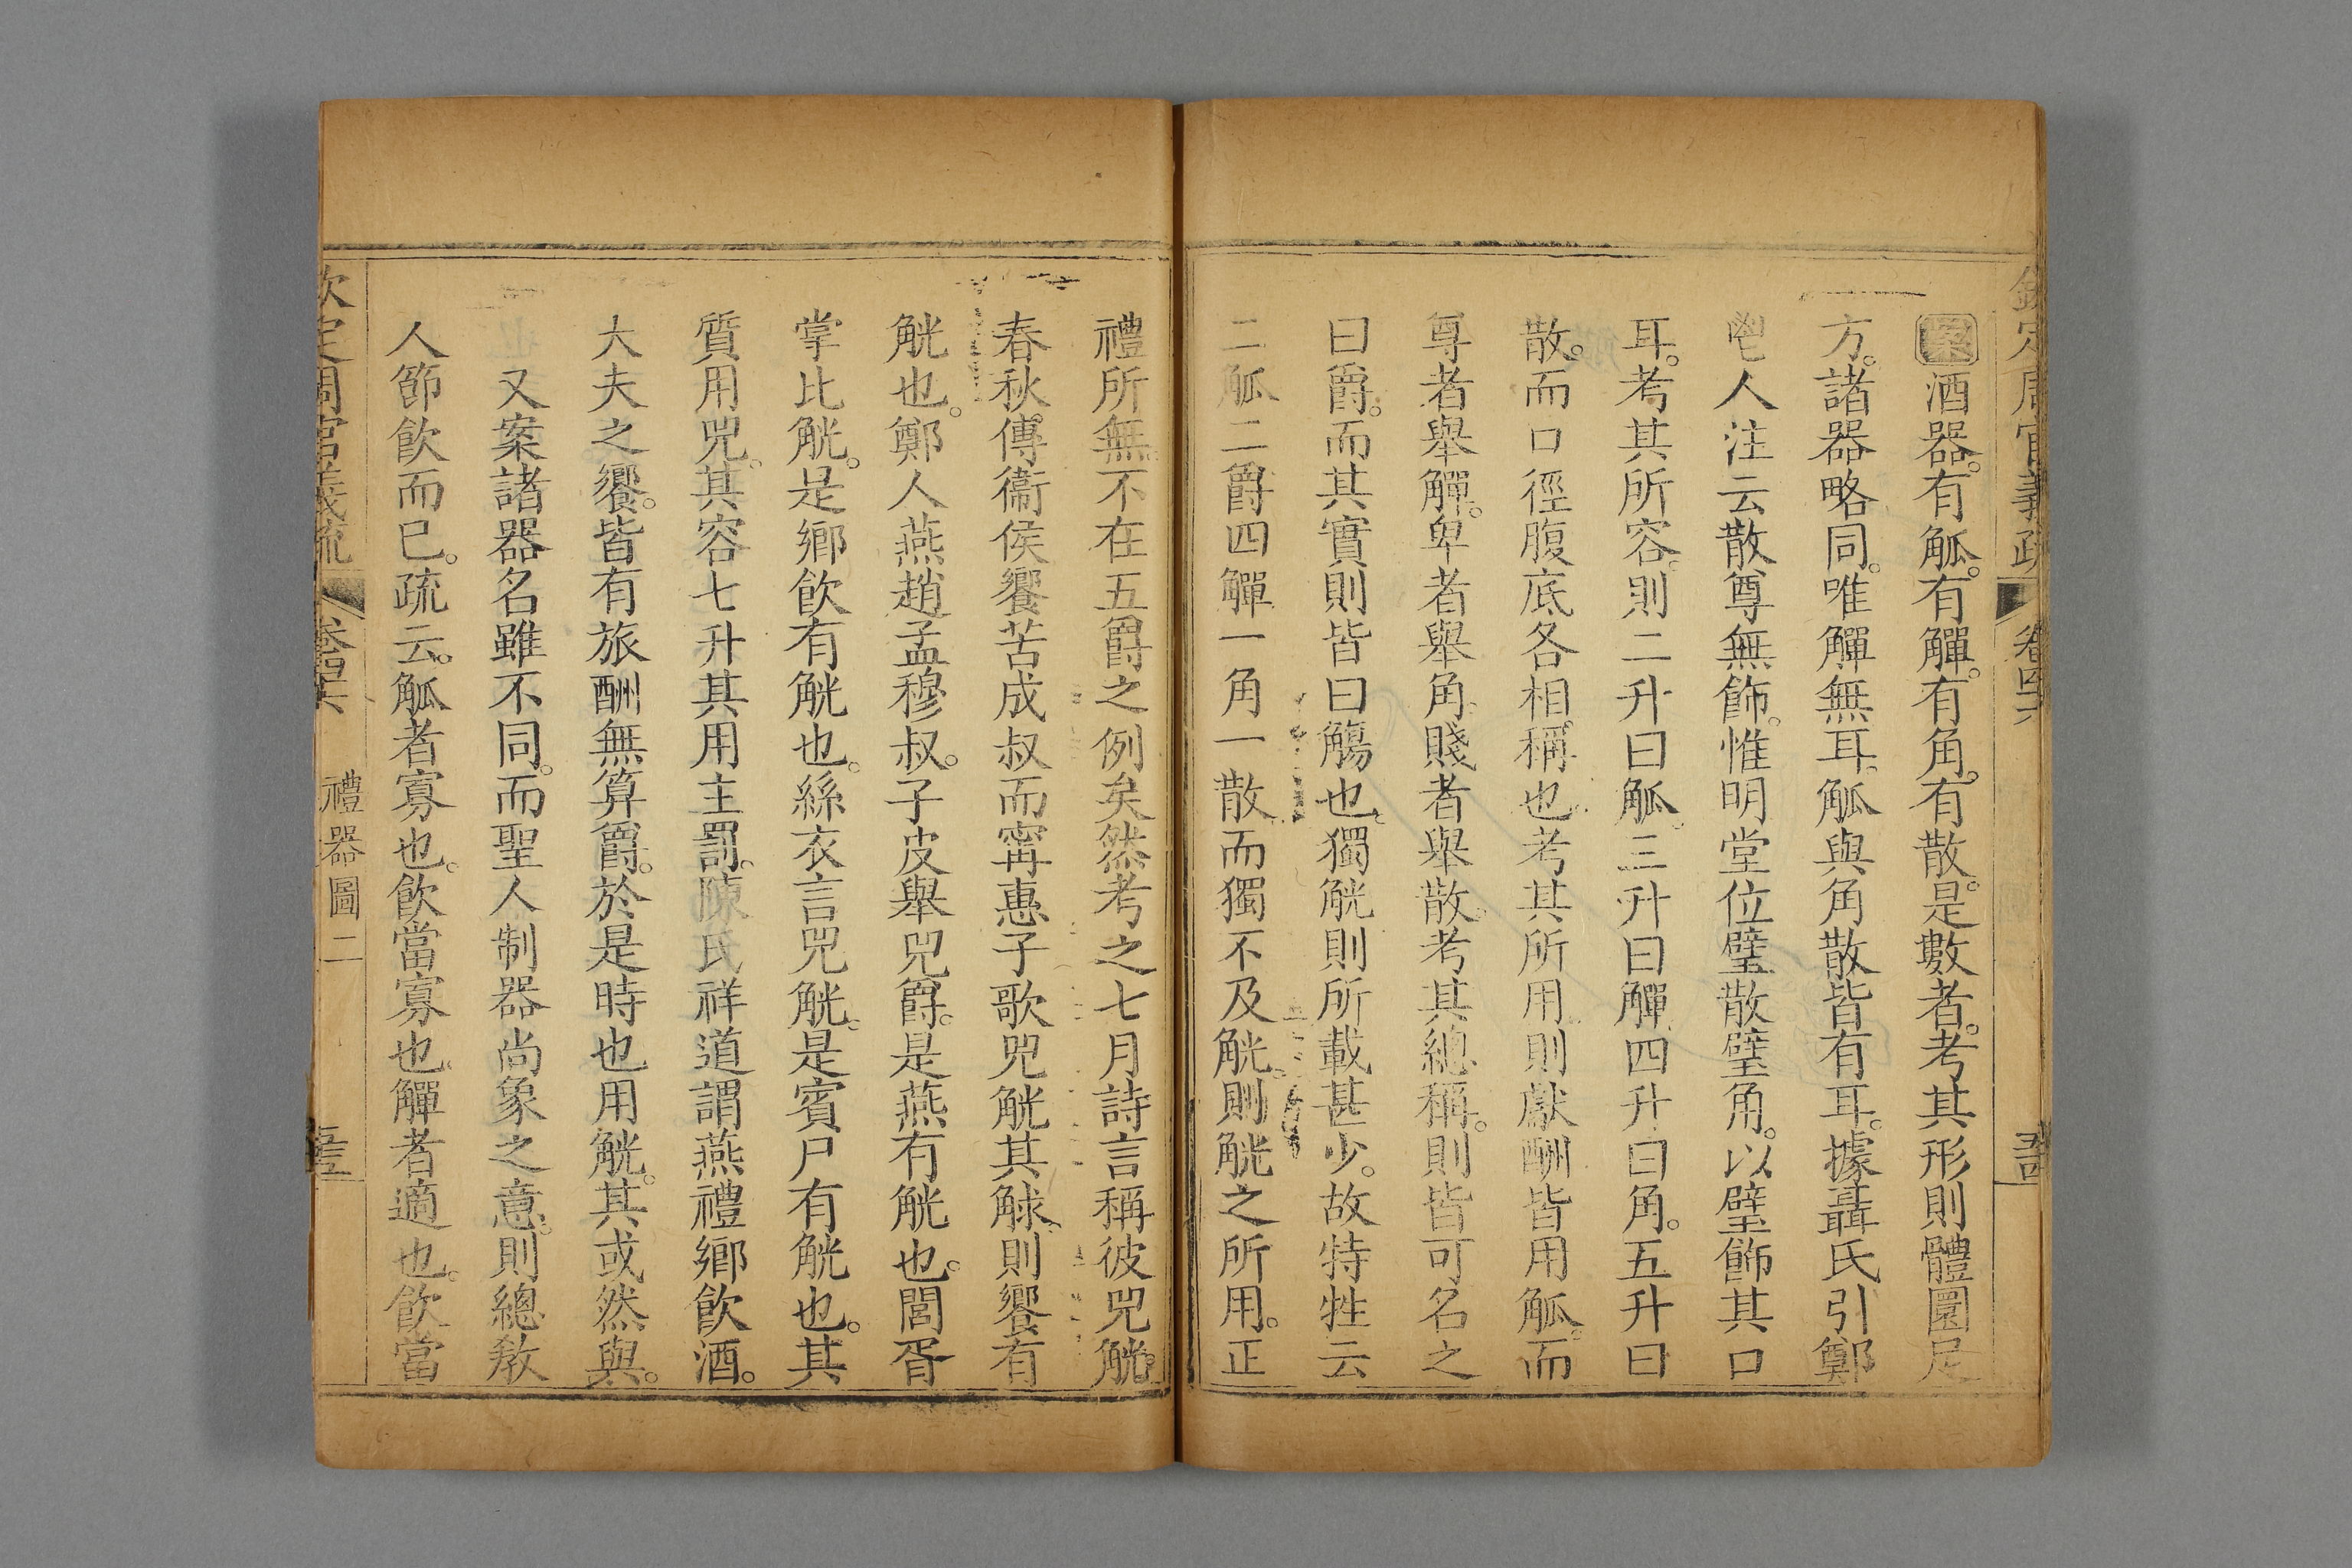 欽定周官義疏 卷四六 五十四
案酒器。有觚。有觶。有角。有散。是數者。考其形則體圜足
方。諸器略同。唯觶無耳。觚與角散皆有耳。據聶氏引鄭
鬯人注云散尊無飾。惟明堂位璧散璧角。以璧飾其口
耳。考其所容。則二升曰觚。三升曰觶四升曰角。五升曰
散。而口徑腹底各相稱也。考其所用則獻酬皆用觚。而
尊者舉觶。卑者舉角。賤者舉散。考其總稱。則皆可名之
曰爵。而其實則皆曰觴也。獨觥則所載甚少。故特牲云
二觚二爵四觶一角一散。而獨不及觥。則觥之所用。正
禮所無。不在五爵之例矣。然考之七月詩言稱彼兕觥。
春秋傳衞侯饗苦成叔而甯惠子歌兕觥其觩。則饗有
觥也。鄭人燕趙孟穆叔。子皮舉兕爵。是燕有觥也。閭胥
掌比觥。是鄉飲有觥也。絲衣言兕觥。是賓尸有觥也。其
質用兕。其容七升其用主罰。陳氏祥道謂燕禮鄉飲酒。
大夫之饗。皆有旅酬無算爵。於是時也用觥。其或然與。
又案諸器名雖不同。而聖人制器尚象之意。則總敎
人節飲而已。疏云。觚者寡也。飲當寡也。觶者適也。飲當
欽定周官義疏 卷四六 禮器圖二